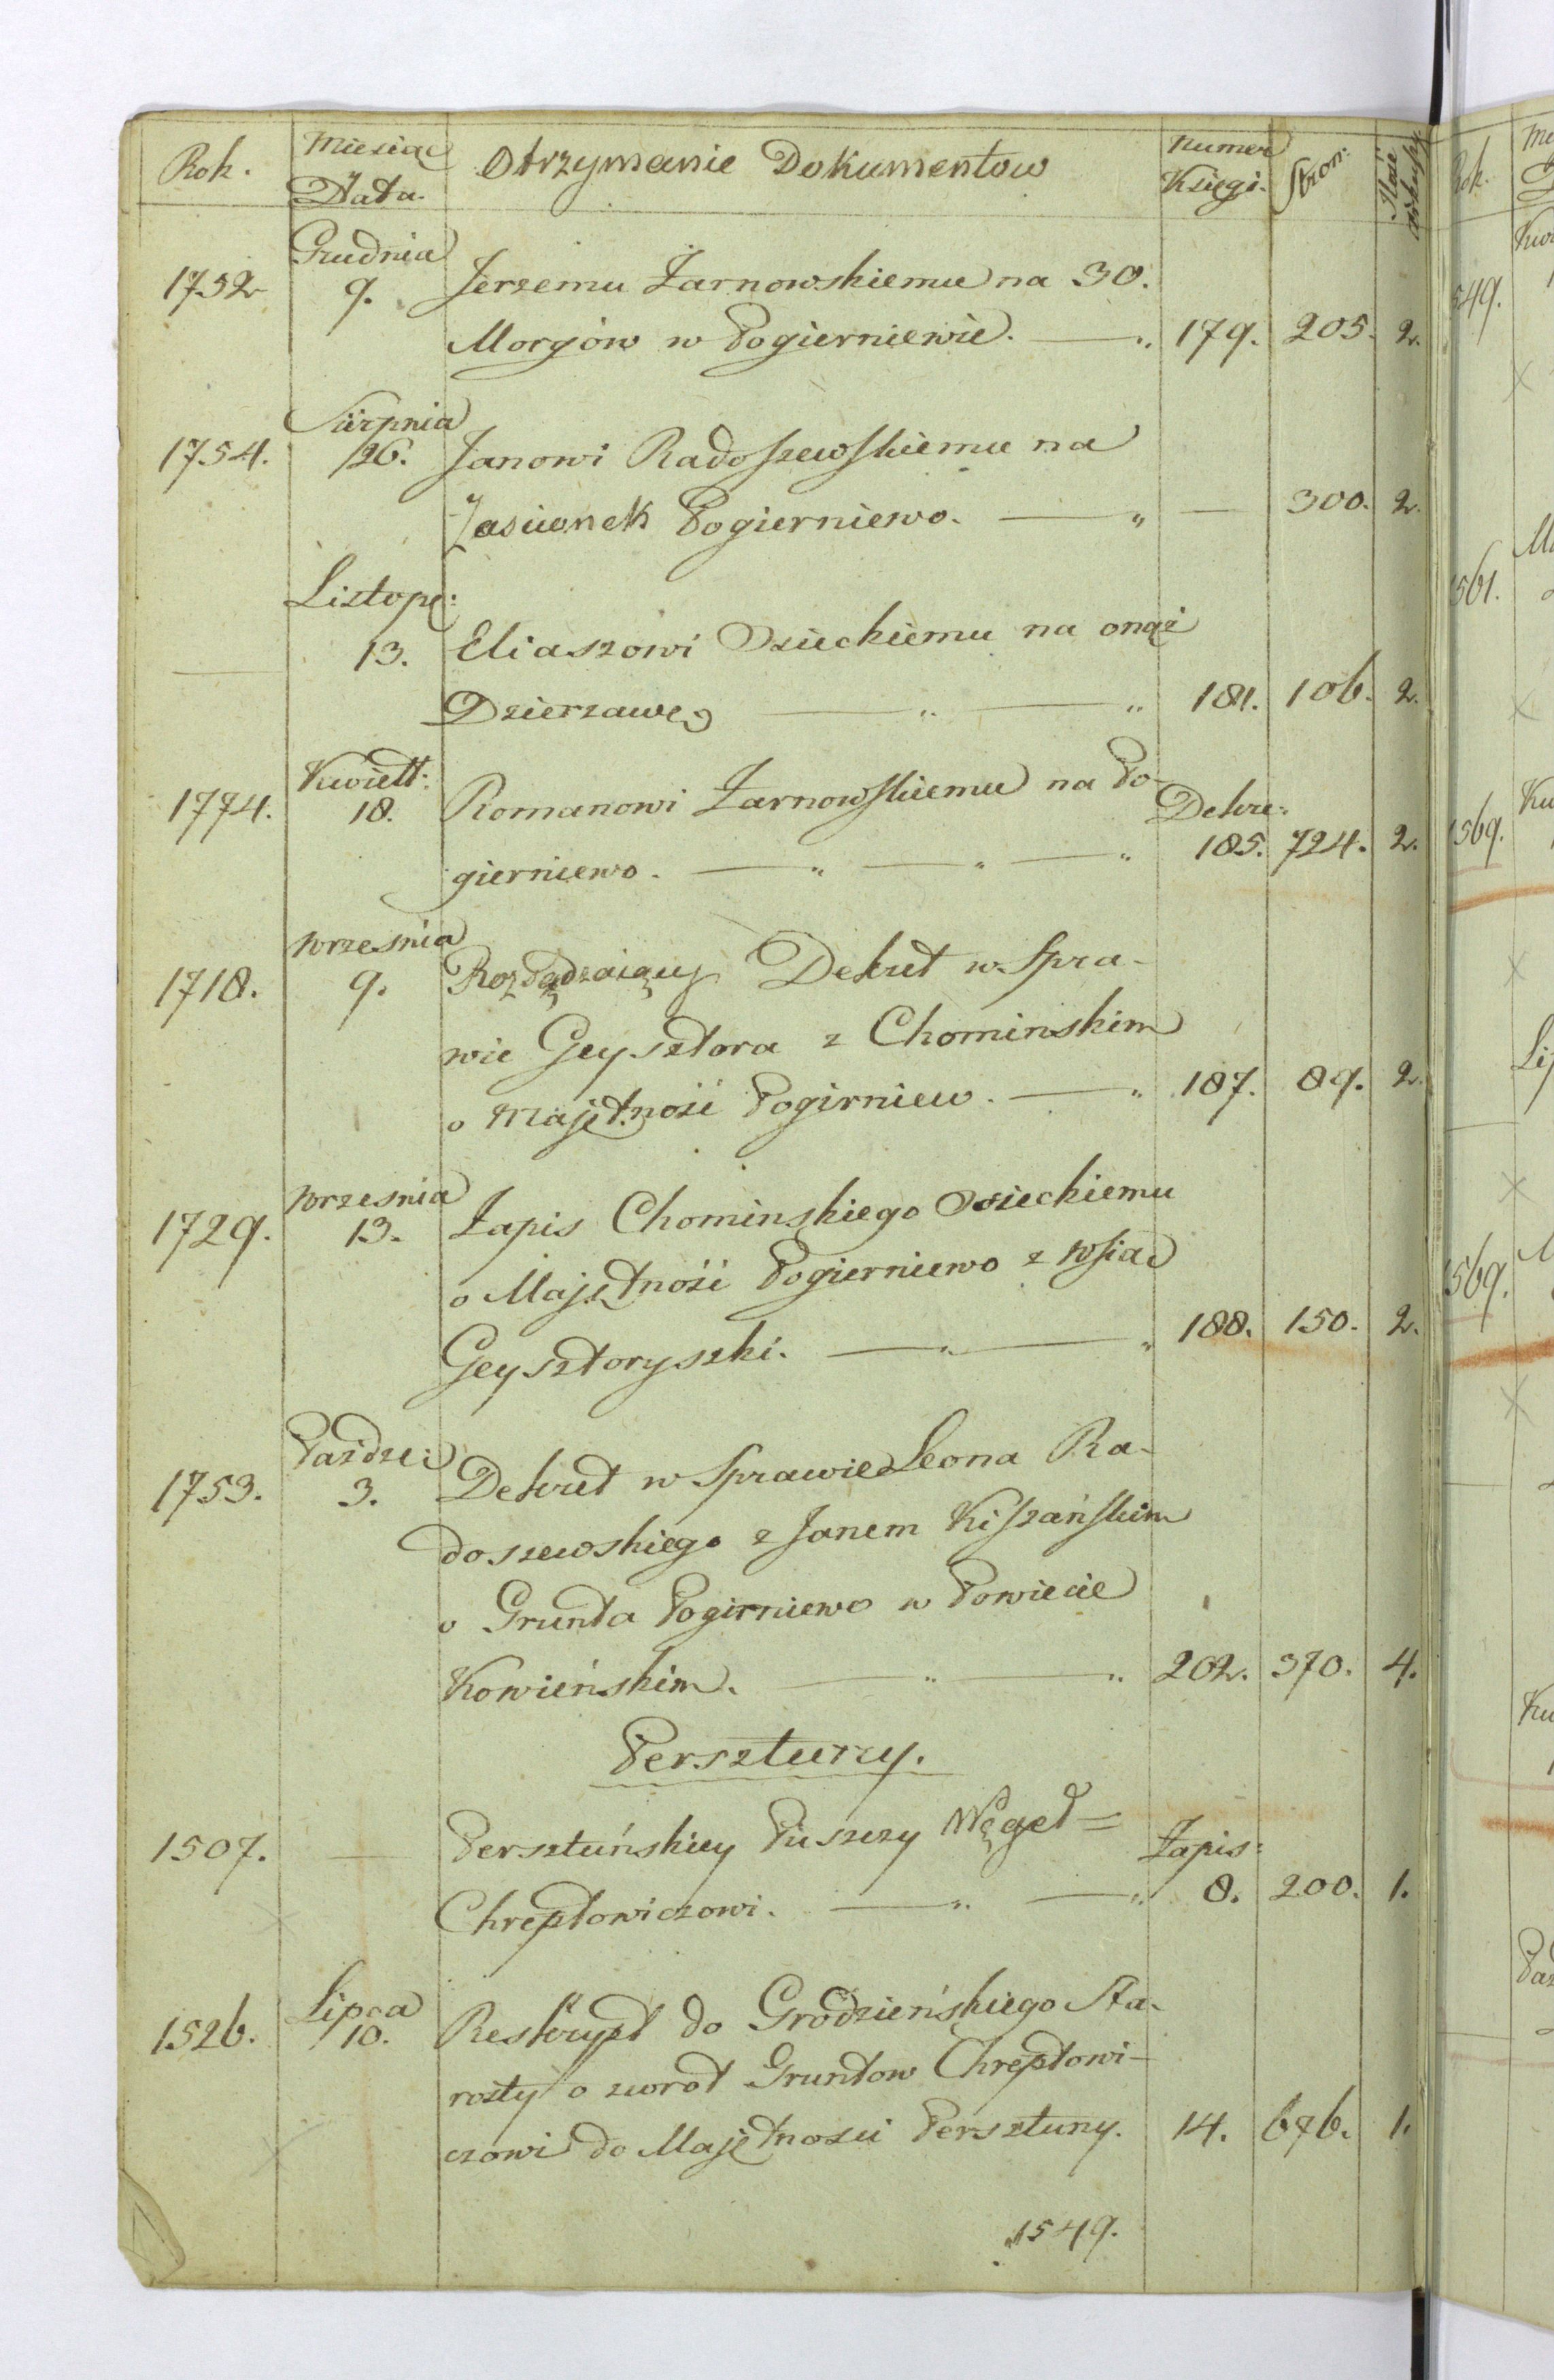 Rok. Miesiąc Data. Otrzymanie Dokumentow Numer Księgi. Stron:
Grudnia
1752 9. Jerzemu Żarnowskiemu na 30.
Morgów w Pogierniewie. 179. 205. 2.
Sierpnia
1754. 26. Janowi Radoszewskiemu na
Zascionek Pogierniewo. — 300. 2.
Listop:
— 13. Eliaszowi Osieckiemu na onąż
Dzierzawę 181. 106. 2.
Kwiett:
1774. 18. Romanowi Żarnowskiemu na Po-
gierniewo. Dekre: 185. 724. 2.
Września
1718. 9. Rozsądzaiący Dekret w Spra-
wie Geysztora z Chominskim
o Majętność Pogirniew. 187. 89. 2.
Września
1729. 13. Zapis Chominskiego Osieckiemu
o Majętność Pogierniewo z Wsią
Geysztoryszki. 188. 150. 2.
Paździe:
1753. 3. Dekret w Sprawie Leona Ra-
doszewskiego z Janem Kiszańskim
o Grunta Pogirniewo w Powiecie
Kowieńskim. 202. 370. 4.
Perszturzy.
1507. — Persztuńskiey Puszczy Węgeł=
Chreptowiczowi. Zapis: 8. 200. 1.
Lipca
1526. 10. Reskrypt do Grodzieńskiego Sta-
rosty o zwrot Gruntow Chreptowi-
czowi do Majętności Persztuny. 14. 676. 1.
1549.